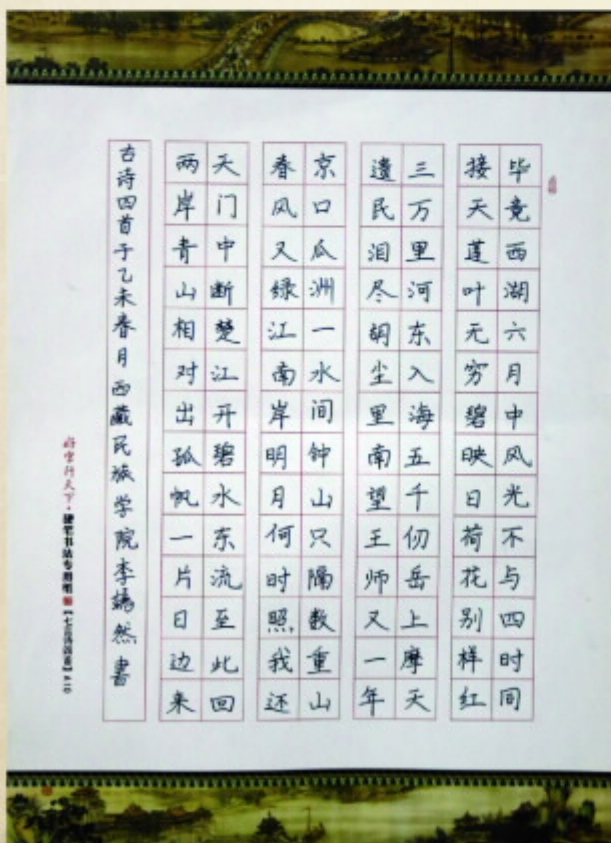 毕竟西湖六月中风光不与四时同
接天莲叶无穷碧映日荷花别样红
三万里河东入海五千仞岳上摩天
遗民泪尽胡尘里南望王师又一年
京口瓜洲一水间钟山只隔数重山
春风又绿江南岸明月何时照我还
天门中断楚江开碧水东流至此回
两岸青山相对出孤帆一片日边来
古诗四首于乙未春月西藏民族学院李嫣然書
好字行天下·硬笔书法专用纸